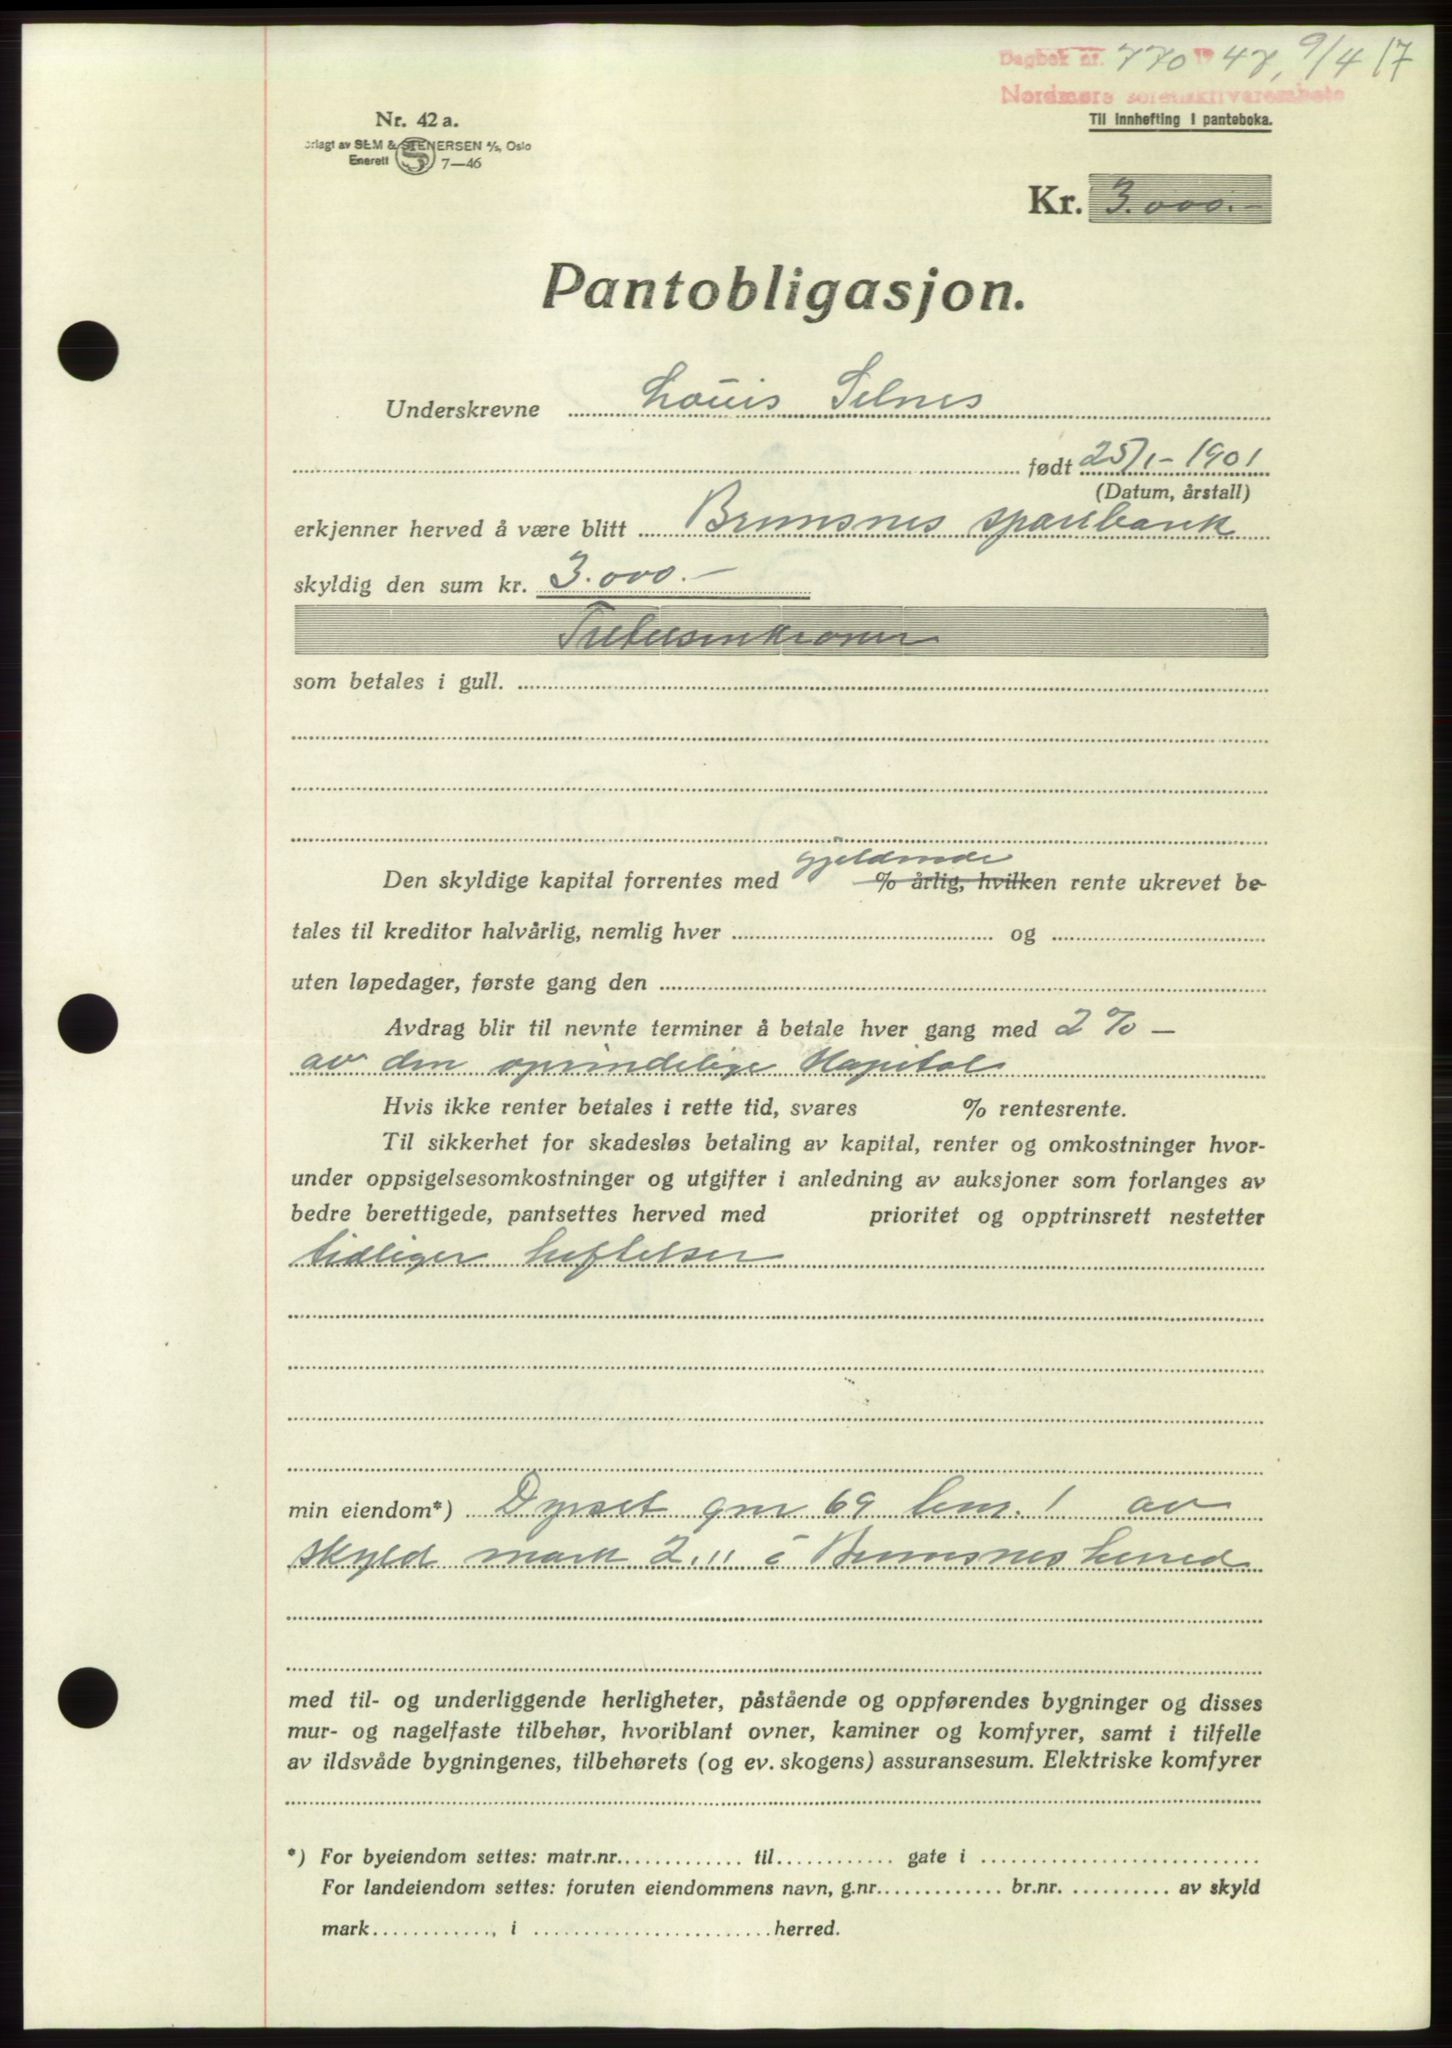 Dagbok nr. 770 19 47, 9/4 17
Nordmøre sorenskriverembete
Nr. 42 a.
Til innhefting i panteboka.
orlagt av SEM & STENERSEN A/S, Oslo
Enerett S 7—46
Kr. 3.000.-
Pantobligasjon.
Underskrevne Louis Selnes
født 25/1-1901
(Datum, årstall)
erkjenner herved å være blitt Bremsnes sparebank
skyldig den sum kr. 3.000.-
Tretusenkroner
som betales i gull.
gjeldende
Den skyldige kapital forrentes med % årlig, hvilken rente ukrevet be-
tales til kreditor halvårlig, nemlig hver og
uten løpedager, første gang den
Avdrag blir til nevnte terminer å betale hver gang med 2% —
av den oprindelige Kapital
Hvis ikke renter betales i rette tid, svares % rentesrente.
Til sikkerhet for skadesløs betaling av kapital, renter og omkostninger hvor-
under oppsigelsesomkostninger og utgifter i anledning av auksjoner som forlanges av
bedre berettigede, pantsettes herved med prioritet og opptrinsrett nestetter
tidliger heftelser
min eiendom*) Dyrset gnr 69 bnr. 1 av
skyld mark 2.11 i Bremsnes herred
med til- og underliggende herligheter, påstående og oppførendes bygninger og disses
mur- og nagelfaste tilbehør, hvoriblant ovner, kaminer og komfyrer, samt i tilfelle
av ildsvåde bygningenes, tilbehørets (og ev. skogens) assuransesum. Elektriske komfyrer
*) For byeiendom settes: matr.nr. til gate i
For landeiendom settes: foruten eiendommens navn, g.nr. br.nr. av skyld
mark , i herred.